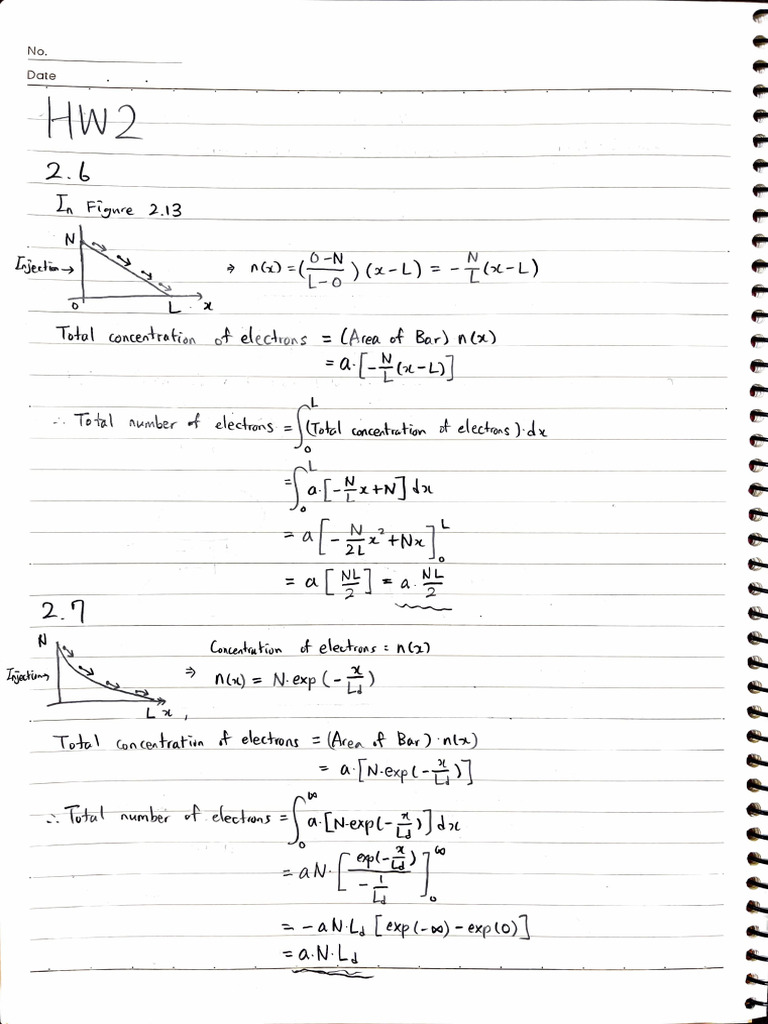 No.
Date . .
HW2
2.6
In Figure 2.13
N
Injection →
0 L x
⇒ n(x) = (0-N / L-0) (x-L) = -N/L (x-L)
Total concentration of electrons = (Area of Bar) n(x)
= a·[-N/L (x-L)]
∴ Total number of electrons = ∫₀ᴸ (Total concentration of electrons)·dx
= ∫₀ᴸ a·[-N/L x+N] dx
= a [-N/2L x² + Nx]₀ᴸ
= a [NL/2] = a·NL/2
2.7
N
Injection →
L x
Concentration of electrons = n(x)
⇒ n(x) = N·exp(-x/Ld)
Total concentration of electrons = (Area of Bar)·n(x)
= a·[N·exp(-x/Ld)]
∴ Total number of electrons = ∫₀^∞ a·[N·exp(-x/Ld)] dx
= aN·[exp(-x/Ld) / -1/Ld]₀^∞
= -aN·Ld [exp(-∞) - exp(0)]
= a·N·Ld